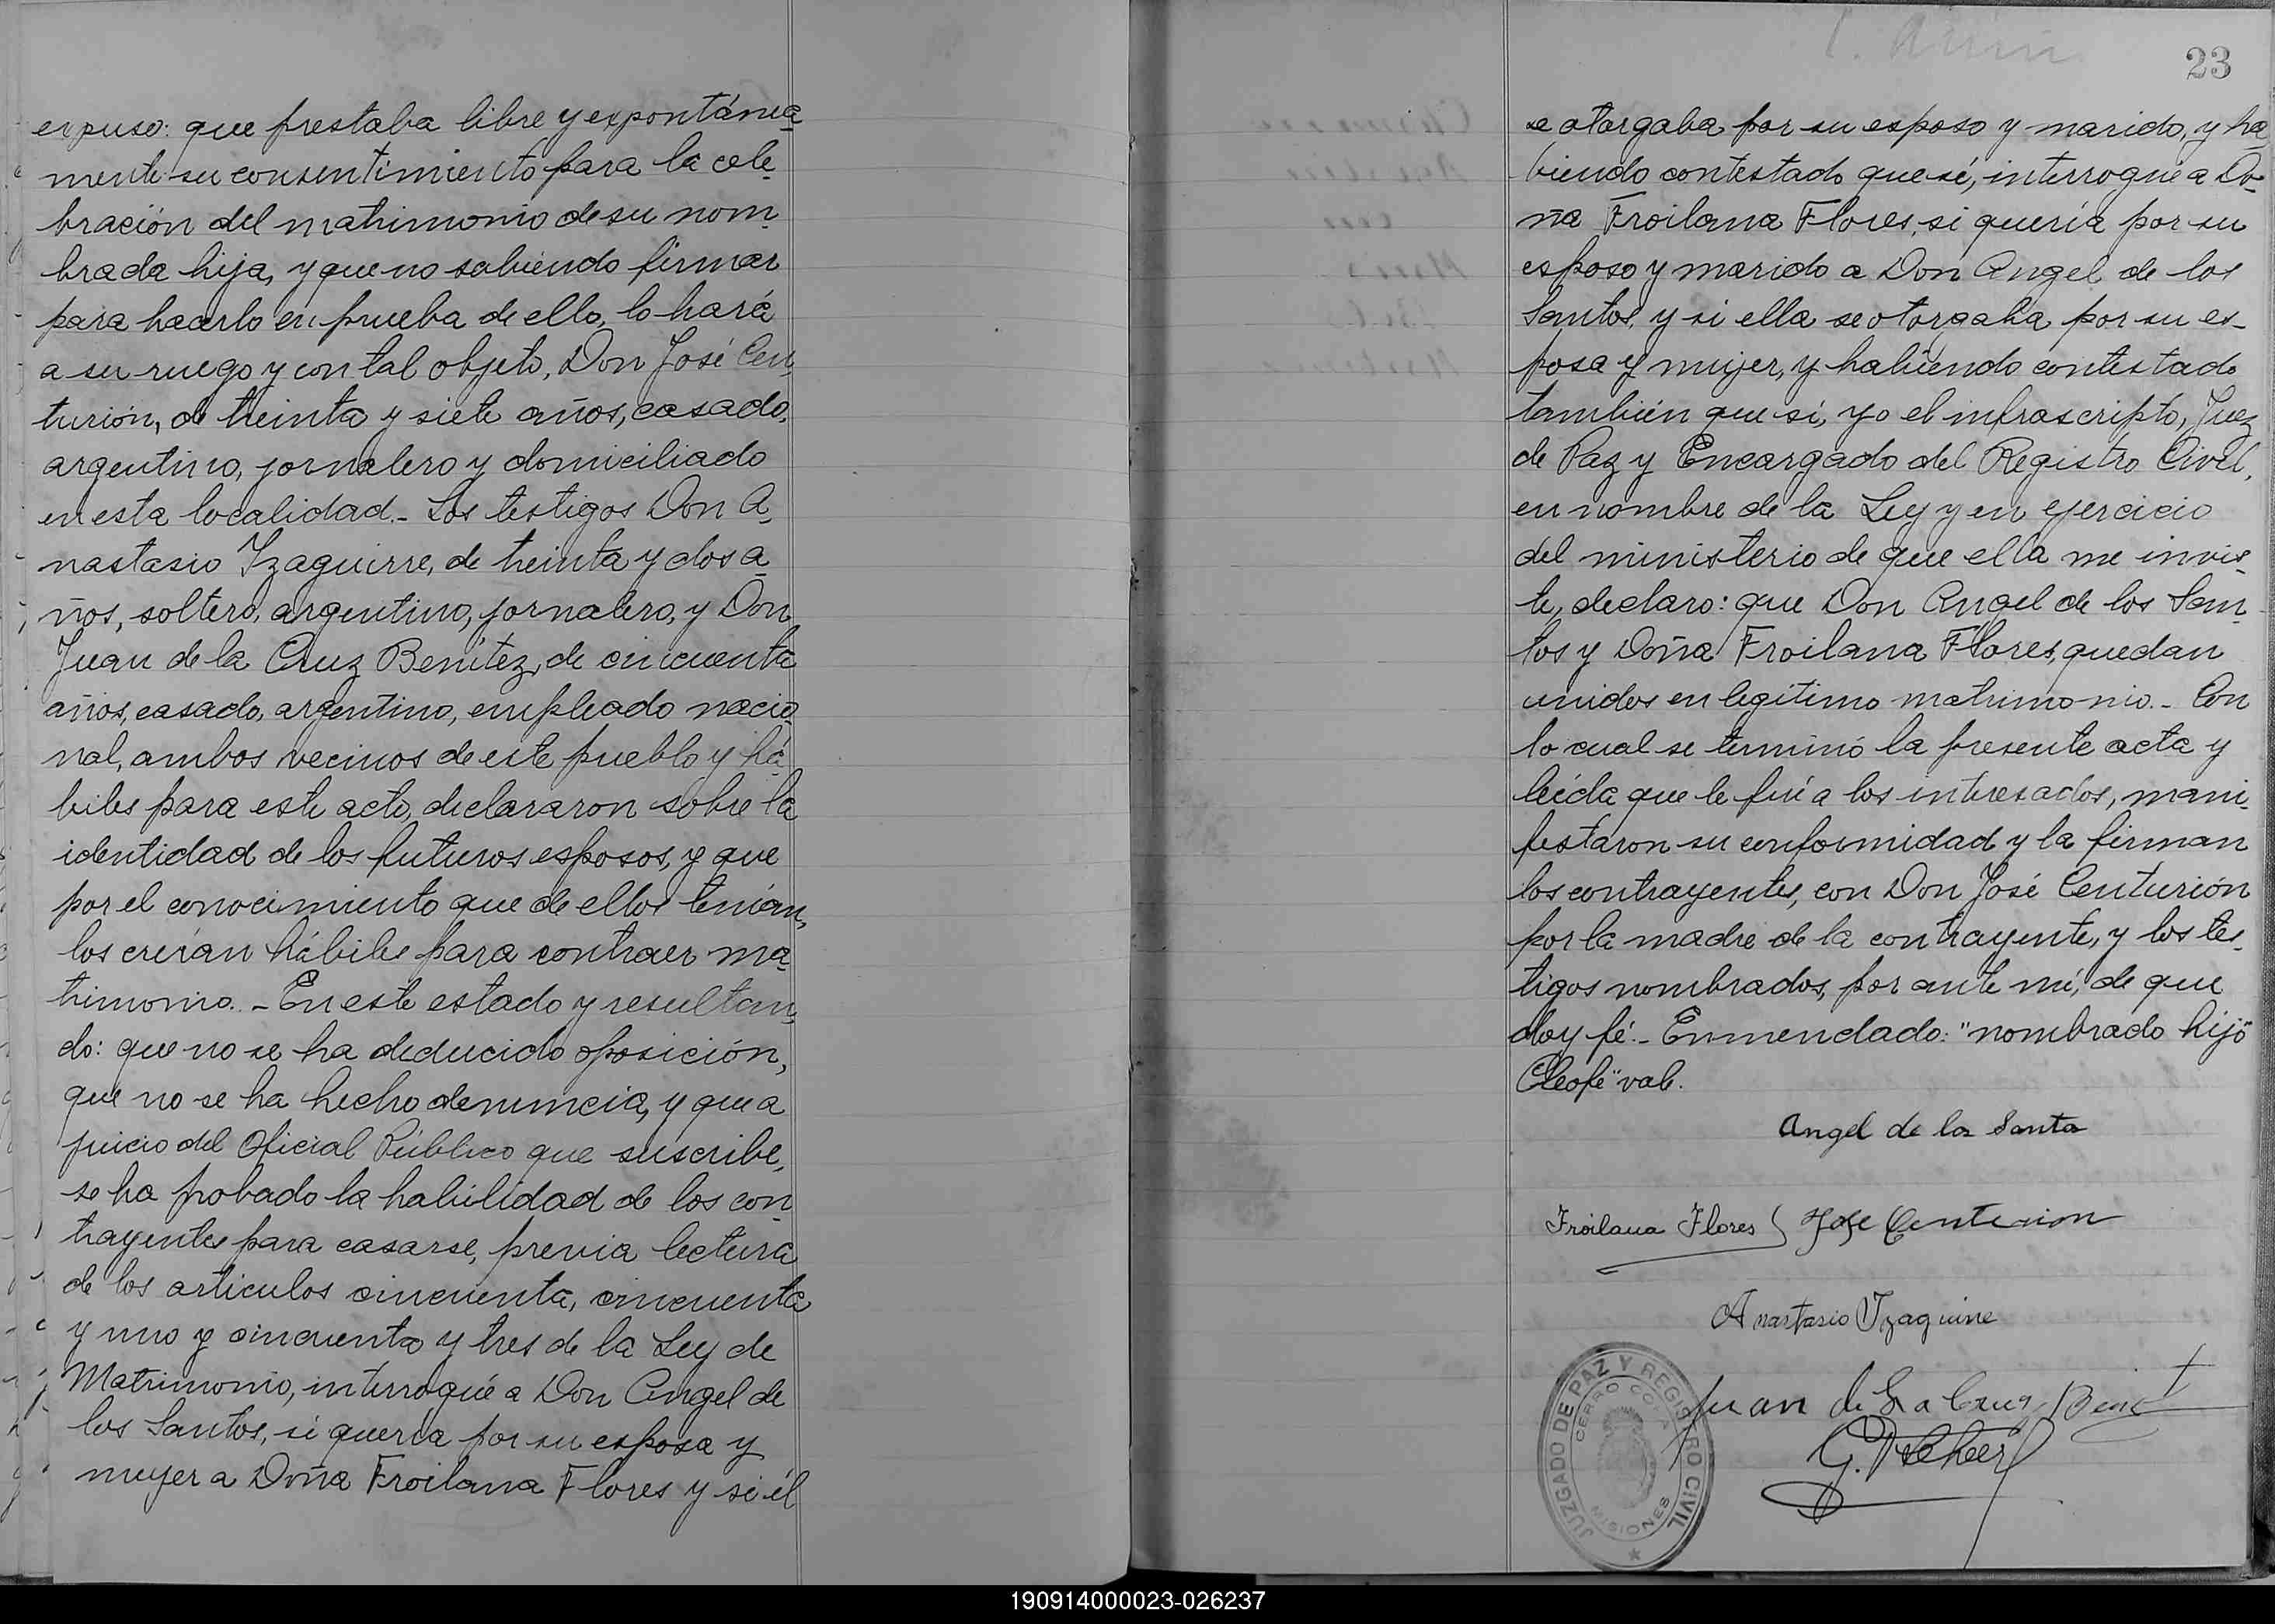 expuso: que prestaba libre y expontánea
mente su consentimiento para la cele
bración del matrimonio de su nom
brada hija, y que no sabiendo firmar
para hacerlo en prueba de ello, lo hará
a su ruego y con tal objeto, Don José Cen
turión, de treinta y siete años, casado,
argentino, jornalero y domiciliado
en esta localidad.- Los testigos Don A
nastasio Yzaguirre, de treinta y dos a
ños, soltero, argentino, jornalero, y Don
Juan de la Cruz Benítez, de cincuenta
años, casado, argentino, empleado nacio
nal, ambos vecinos de este pueblo y há
biles para este acto, declararon sobre la
identidad de los futuros esposos, y que
por el conocimiento que de ellos tenían,
los creían hábiles para contraer ma
trimonio.- En este estado y resultan
do: que no se ha deducido oposición,
que no se ha hecho denuncia, y que a
juicio del Oficial Público que suscribe,
se ha probado la habilidad de los con
trayentes para casarse, previa lectura
de los articulos cincuenta, cincuenta
y uno y cincuenta y tres de la Ley de
Matrimonio, interrogué a Don Angel de
los Santos, si quería por su esposa y
mujer a Doña Froilana Flores y si él
23
se otorgaba por su esposo y marido, y ha
biendo contestado que sí, interrogué a Do
ña Froilana Flores, si quería por su
esposo y marido a Don Angel de los
Santos, y si ella se otorgaba por su es-
posa y mujer, y habiendo contestado
también que sí, yo el infrascripto, Juez
de Paz y Encargado del Registro Civil,
en nombre de la Ley y en ejercicio
del ministerio de que ella me invis
te, declaro: que Don Angel de los San
tos y Doña Froilana Flores, quedan
unidos en legítimo matrimonio.- Con
lo cual se terminó la presente acta y
leída que le fué a los interesados, mani
festaron su conformidad y la firman
los contrayentes, con Don José Centurión
por la madre de la contrayente, y los tes
tigos nombrados, por ante mí, de que
doy fé.- Enmendado: "nombrado hijo"
Cleofé" vale.
Angel de los Santo
Froilana Flores Jose Centurion
Anastasio Yzaguirre
Juan de La Cruz
JUZGADO DE PAZ Y REGISTRO CIVIL
CERRO CORÁ
MISIONES
190914000023-026237